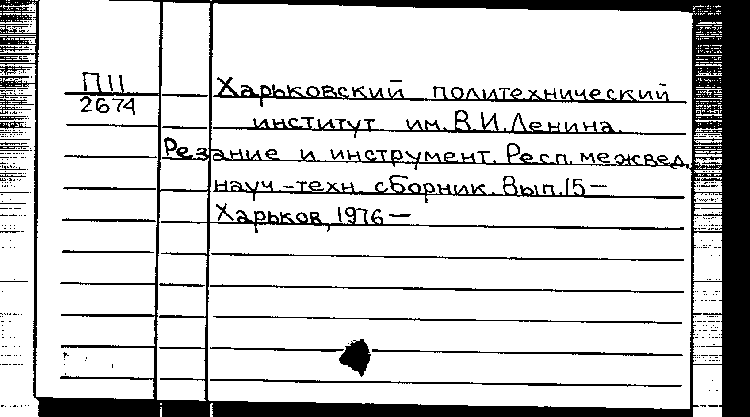 П11
2674
Харьковский политехнический
институт им. В.И. Ленина.
Резание и инструмент. Респ. межвед.
науч.-техн. сборник. Вып. 15 —
Харьков, 1976 —